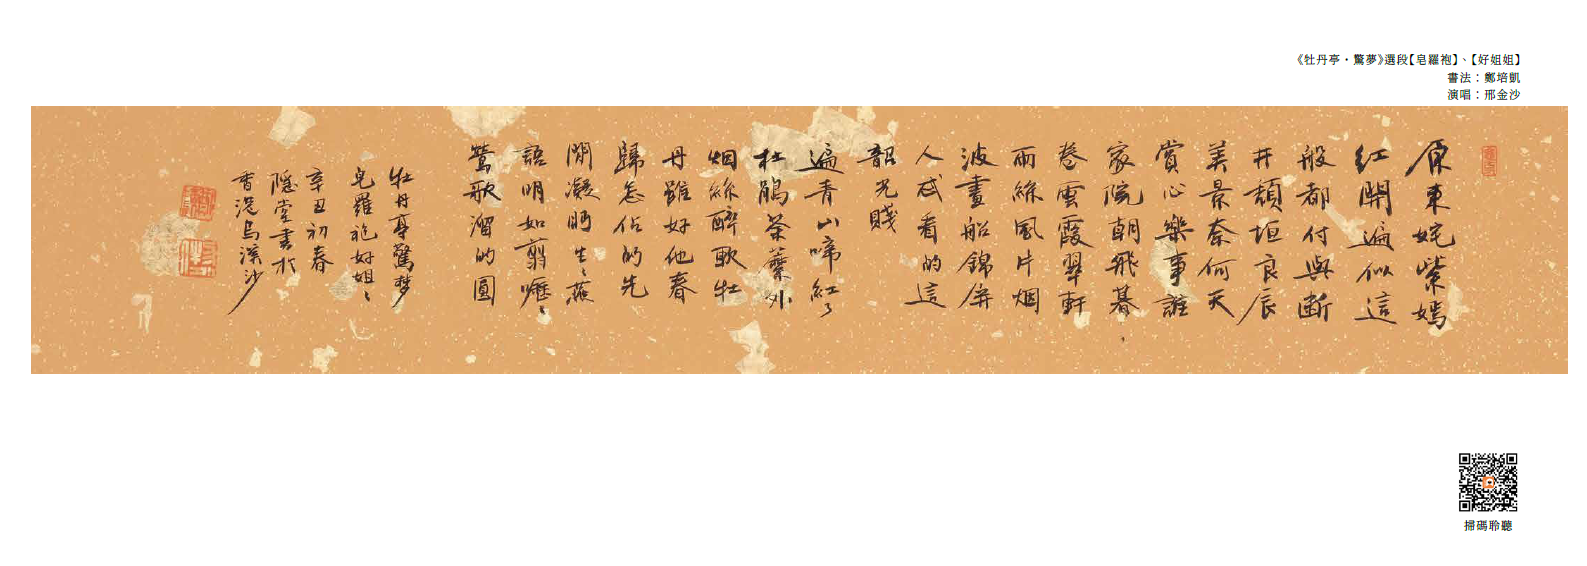 《牡丹亭・驚夢》選段【皂羅袍】、【好姐姐】
書法：鄭培凱
演唱：邢金沙
原來姹紫嫣
紅開遍似這
般都付與斷
井頹垣良辰
美景奈何天
賞心樂事誰
家院朝飛暮
卷雲霞翠軒
雨絲風片烟
波畫船錦屏
人忒看的這
韶光賤
遍青山啼紅了
杜鵑荼蘼外
烟絲醉軟牡
丹雖好他春
歸怎佔的先
閑凝眄生生燕
語明如翦嚦嚦
鶯歌溜的圓
牡丹亭驚梦
皂羅袍好姐姐
辛丑初春
隱堂書於
香港烏溪沙
掃碼聆聽